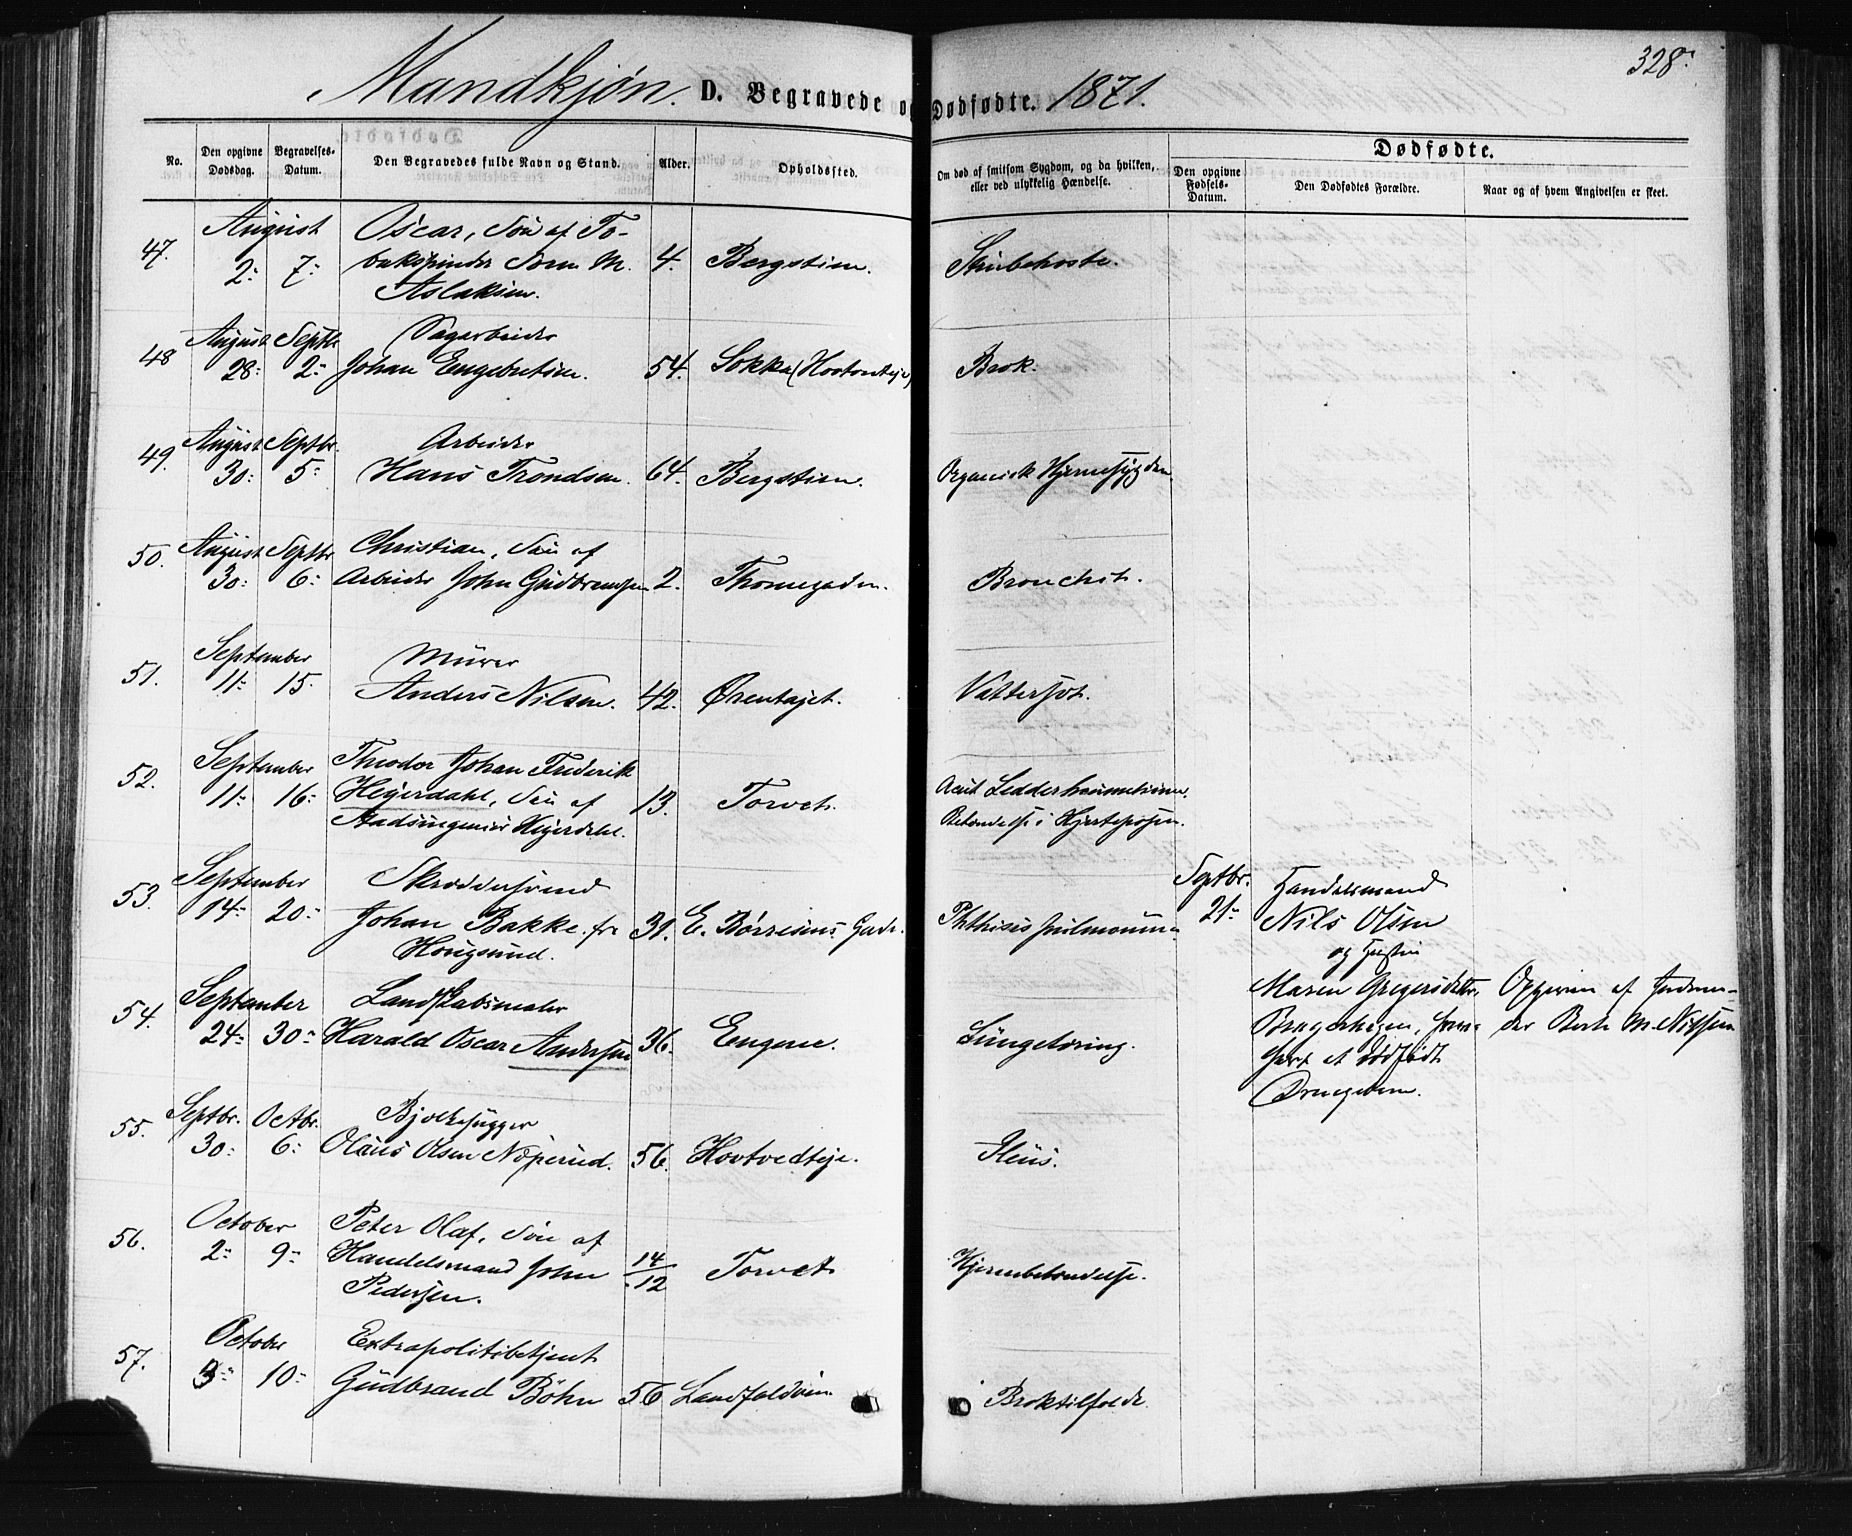 328.
Mandkjøn. D. Begravede og Dødfødte. 1871.
No.
Den opgivne Dødsdag.
Begravelses-Datum.
Den Begravedes fulde Navn og Stand.
Alder.
Opholdssted.
Om død af smitsom Sygdom, og da hvilken, eller ved ulykkelig Hændelse.
Dødfødte.
Den opgivne Fødsels-Datum.
Den Dødfødtes Forældre.
Naar og af hvem Angivelsen er skeet.
August Oscar, Søn af To-
47. 2 7 bakspinder Sørn M. 4. Bergstien. Strubehoste.
Aslaksen.
August Septbr. Sagarbeider
48 28 2 Johan Engebretsen. 54. Sokka (Hovtveteje) Brok.
August Septbr. Arbeider
49. 30 5 Hans Trondsen. 64. Bergstien. Organisk Hjernesygdom
August Septbr Christian, Søn af
50. 30 6 Arbeider John Gudbrandsen 2. Thornegaden. Bronchit.
September Murer
51. 11 15. Anders Nilsen. 42. Ørentajet. Vattersot.
September Theodor Johan Frederik
52. 11 16 Heyerdahl, Søn af 13. Torvet. Acut Ledderheumatisme,
Stadsingeniør Heyerdahl. Betændelse i Hjerteposen.
September Skræddersvend
53. 14 20 Johan Bakke fra 31. E. Børresens Gade. Phthisis pulmonum
Hougsund.
Septbr. 21 Handelsmand
Nils Olsen
og Hustru
Maren Gregersdatter,
Bragerhagen,
et dødfødt
Drengebarn.
Opgiven af Jordmo-
der Berte M. Nilssen
September Landskabsmaler
54. 24 30 Harald Oscar Andersen 36. Engene. Lungetæring.
Septbr. Octbr. Bjelkehugger
55. 30 6 Olaus Olsen Nøperud. 56. Hovtvedteje. Ileus.
October Peter Olaf, Søn af
56. 2 9 Handelsmand John 14/12 Torvet Hjernebetændelse.
Pedersen.
October Extrapolitibetjent
57. 3 10 Gudbrand Böhn 56 Landfaldøien Broktilfælde